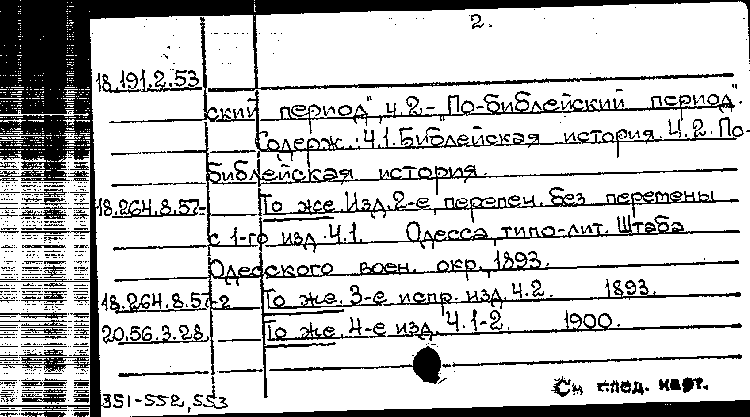 2.
18.191.2.53
ский период", ч.2-„По-библейский период".
Содерж.: ч.1. Библейская история. ч.2. По-
библейская история.
18.264.8.57- То же. Изд. 2-е, перепеч. без перемены
с 1-го изд. ч.1. Одесса, типо-лит. Штаба
Одесского воен. окр., 1893.
18.264.8.57-2 То же. 3-е испр. изд. ч.2. 1893.
20.56.3.28. То же. 4-е изд. ч.1-2. 1900.
См след. карт.
351-552, 553